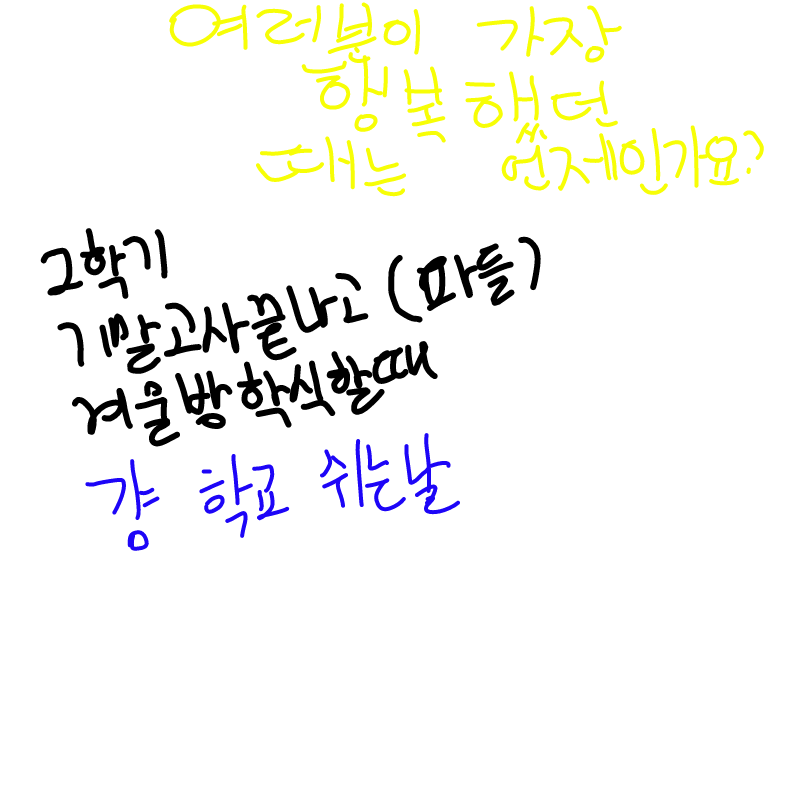 여러분이 가장
행복했던
때는 언제인가요?
2학기
기말고사끝나고 (파들)
겨울방학식할때
걍 학교 쉬는날